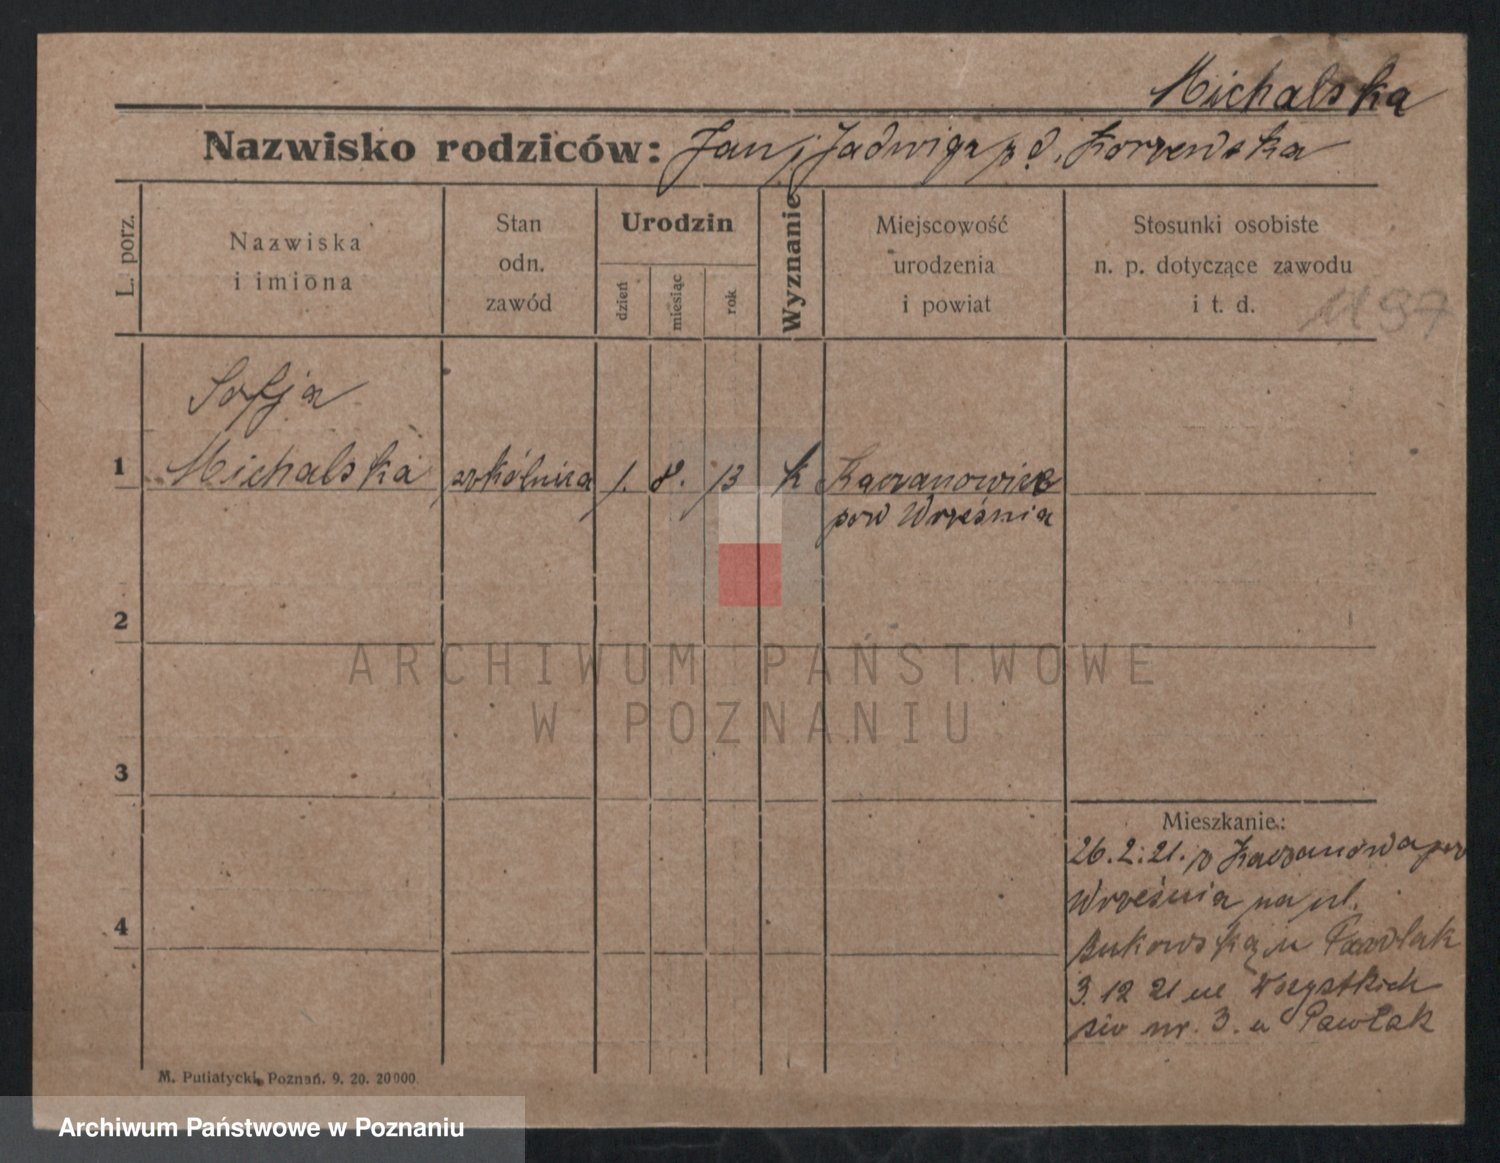 Michalska
Nazwisko rodziców: Jan i Jadwiga z d. Korzewska
L. porz.
Nazwiska
i imiona
Stan
odn.
zawód
Urodzin
dzień
miesiąc
rok
Wyznanie
Miejscowość
urodzenia
i powiat
Stosunki osobiste
n. p. dotyczące zawodu
i t. d.
1197
Sofja
1 Michalska szkólnica 1. 8. 13 k Kaczanowice
pow Września
2
ARCHIWUM PAŃSTWOWE
W POZNANIU
3
Mieszkanie:
26.2.21. z Kaczanowa pow
Września na ul.
4
Bukowską u Pawlak
3. 12 21 ul Wszystkich
św nr. 3. u Pawlak
M. Putiatycki, Poznań. 9. 20. 20000.
Archiwum Państwowe w Poznaniu